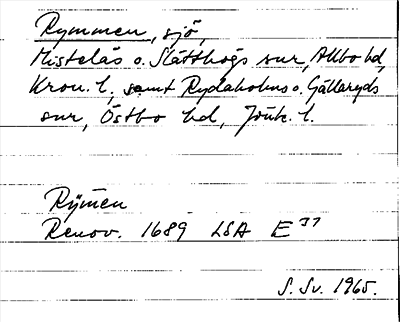 Rymmen, sjö,
Mistelås o. Slätthögs snr, Allbo hd,
Kron. l., samt Rydaholms o. Gällaryds
snr, Östbo hd, Jönk. l.
Rÿm̄en
Renov. 1689 LSA E³⁷
S. Sv. 1965.